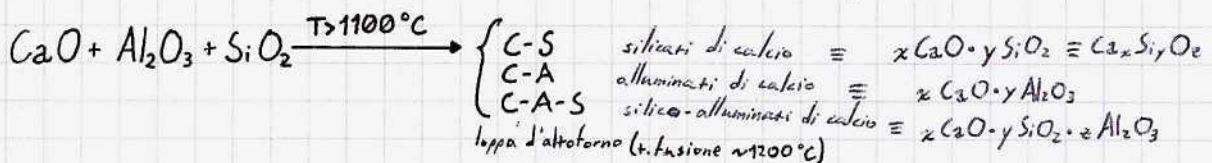 CaO + Al₂O₃ + SiO₂ T>1100°C → { C-S silicati di calcio ≡ xCaO·ySiO₂ ≡ CaₓSiᵧO_z
C-A alluminati di calcio ≡ xCaO·yAl₂O₃
C-A-S silico-alluminati di calcio ≡ xCaO·ySiO₂·zAl₂O₃
loppa d'altoforno (t. fusione ~1200°C)